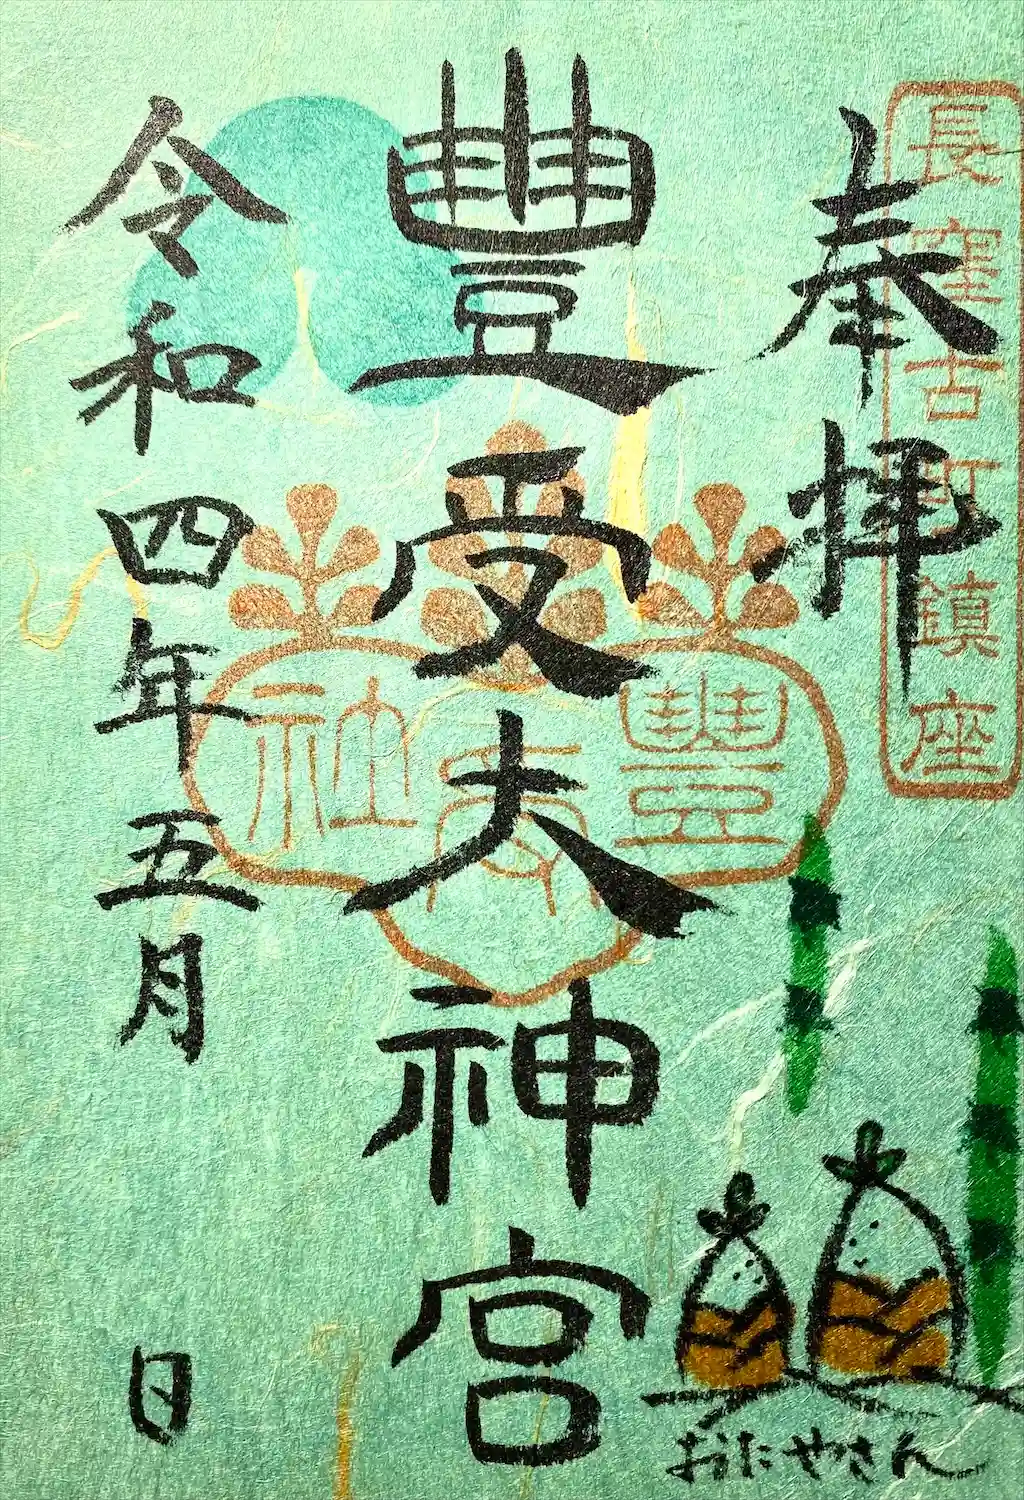 長窪古町鎮座
奉拝
豊受大神宮
豊受社
令和四年五月 日
おたやさん